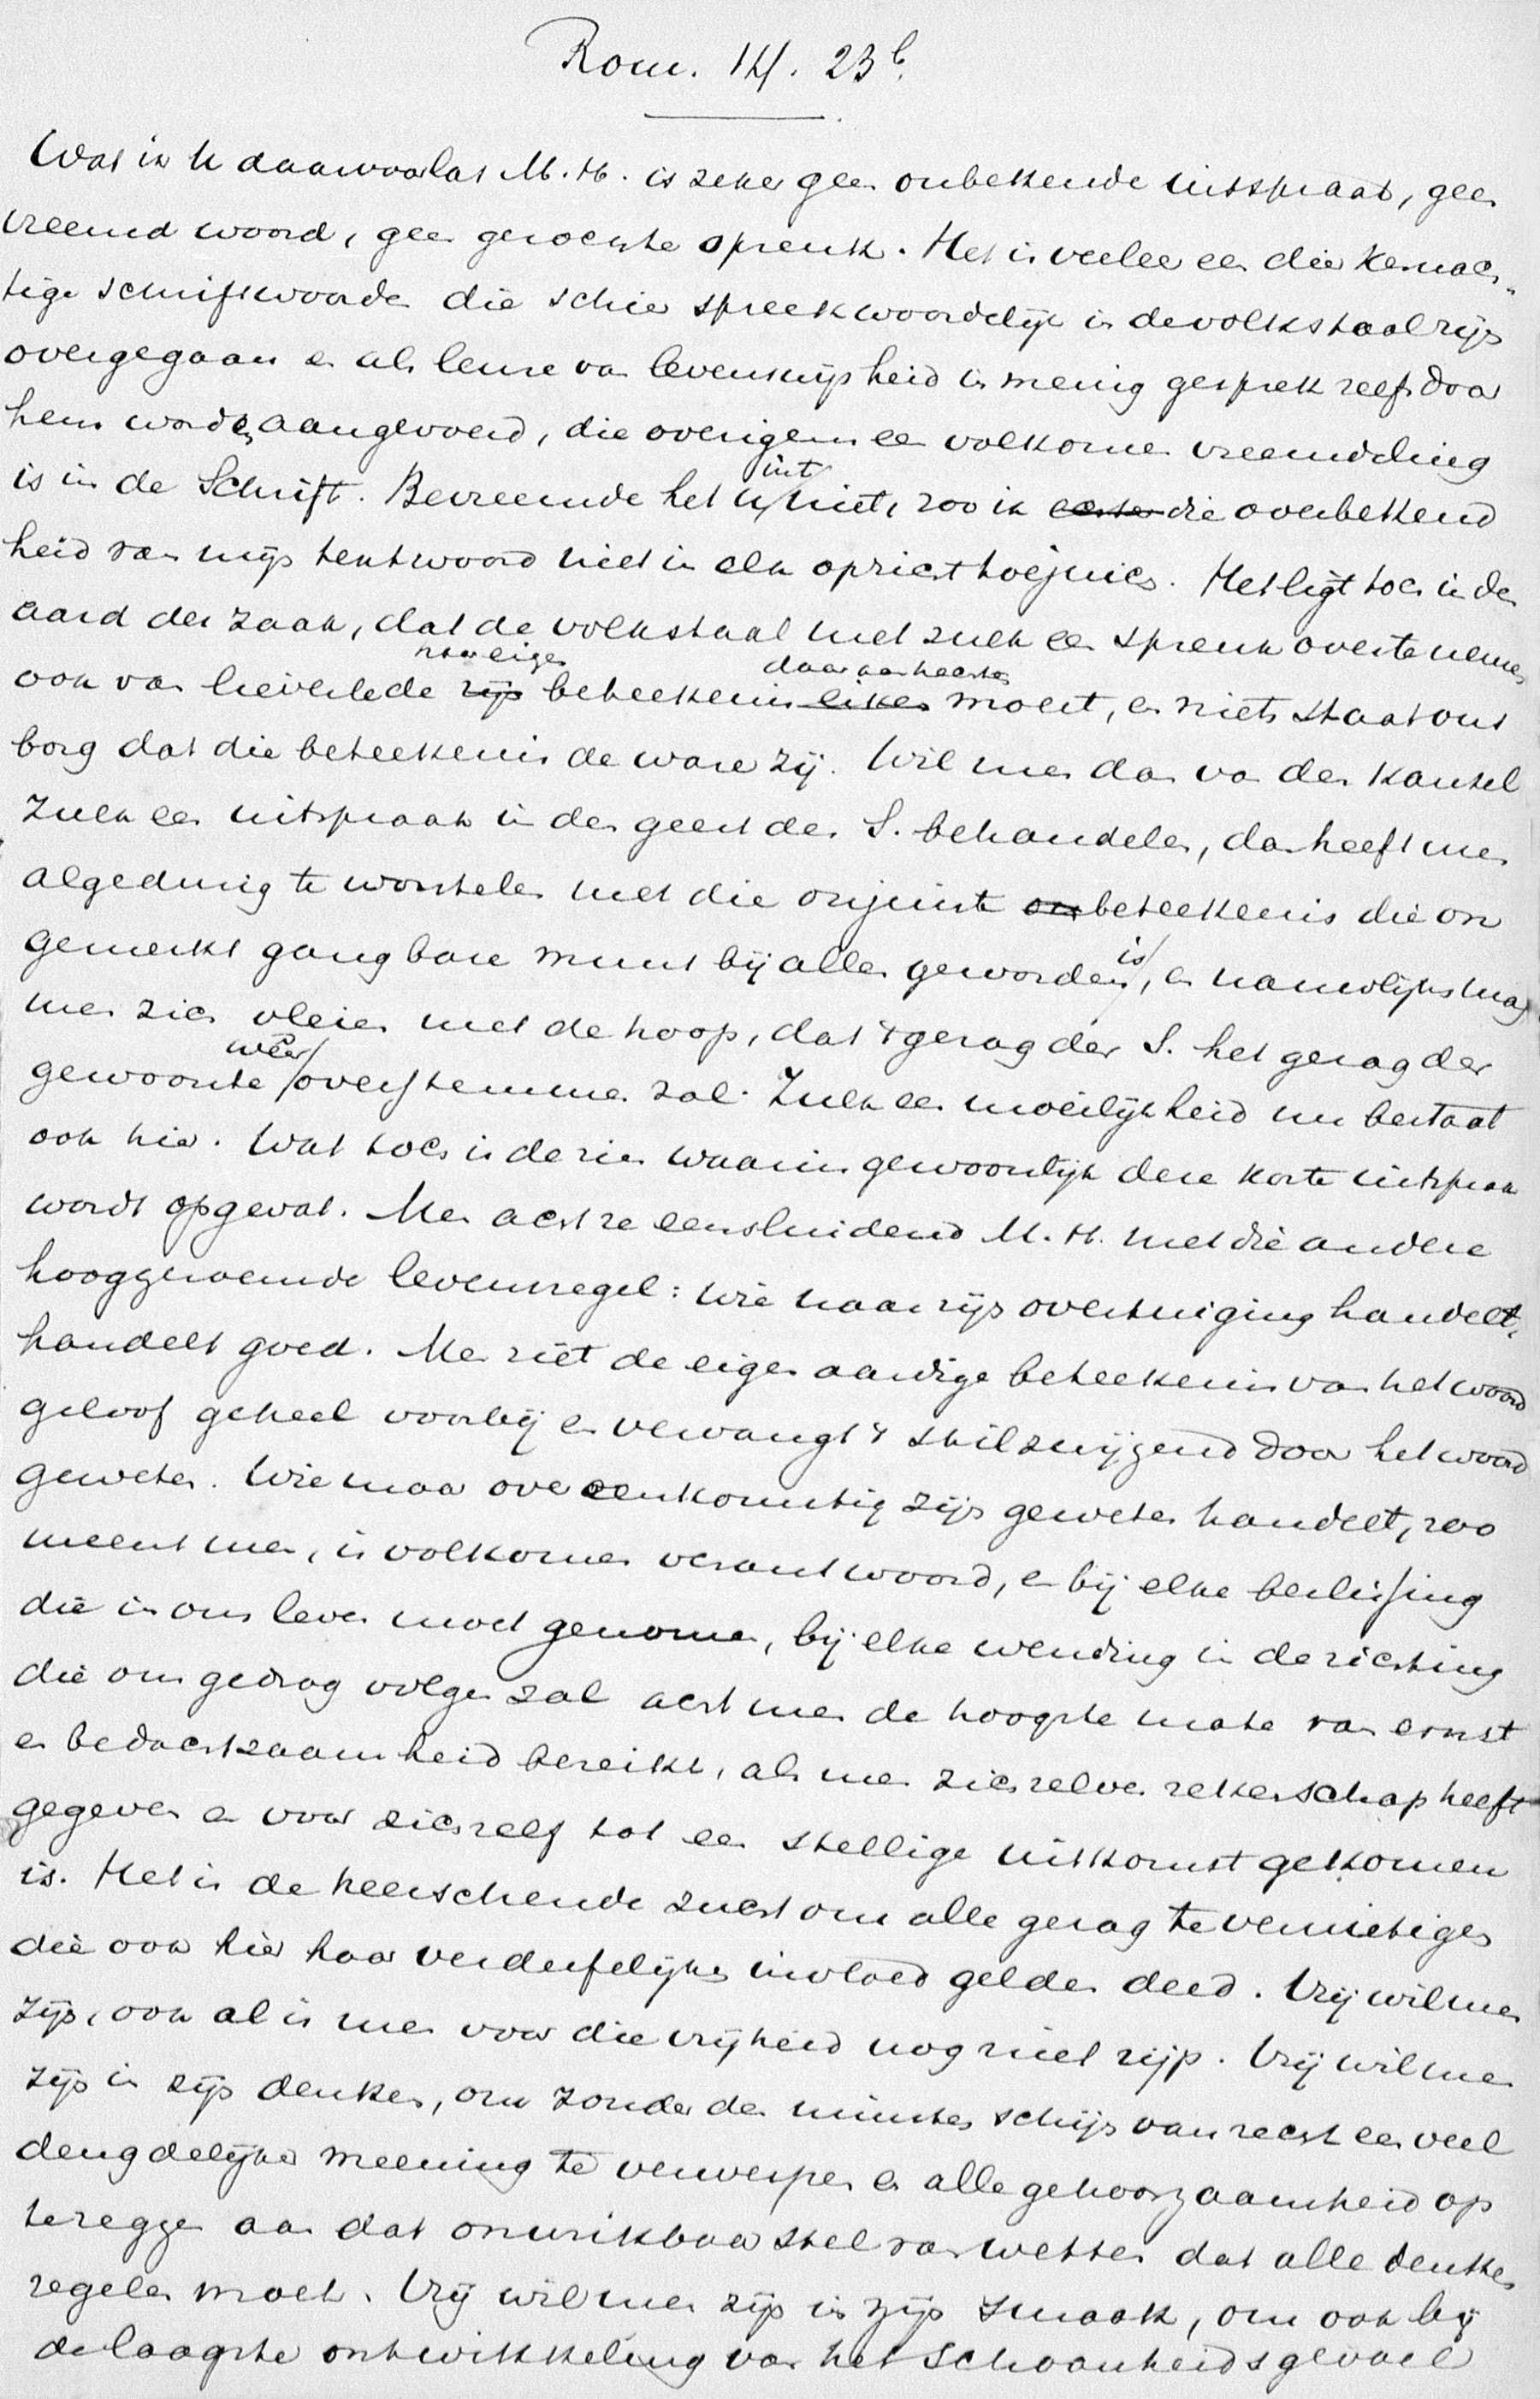 Rom. 14. 23b.
Wat ik U daar voorlas M. H. is zeker geen onbekende uitspraak, geen
vreemd woord, geen gezochte spreuk. Het is veeleer een dier kernach-
tige schriftwoorden die schier spreekwoordelijk in de volkstaal zijn
overgegaan en als leuze van levenswijsheid in menig gesprek zelfs door
hem worden aangevoerd, die overigens een volkomen vreemdeling
is in de Schrift. Bevreemde het U int niet, zoo ik die overbekend
heid van mijn tekstwoord niet in elk opzicht toejuich. Het ligt toch in den
aard der zaak, dat de volkstaal met zulk een spreuk over te nemen
ook van lieverlede naar eigen zijn beteekenis daaraan hechten moest, en niets staat ons
borg dat die beteekenis de ware zij. Wil men dan van den kansel
zulk een uitspraak in den geest der S. behandelen, dan heeft men
algedurig te worstelen met die onjuiste beteekenis die on
gemerkt gangbare munt bij allen geworden is, en nauwlijks mag
men zich vleien met de hoop, dat 't gezag der S. het gezag der
gewoonte weer overstemmen zal. Zulk een moeilijkheid nu bestaat
ook hier. Wat toch is de zin waarin gewoonlijk deze korte uitspraak
wordt opgevat. Men acht ze eensluidend M. H. met die andere
hooggeroemde levensregel: wie naar zijn overtuiging handelt,
handelt goed. Men ziet de eigenaardige beteekenis van het woord
geloof geheel voorbij en vervangt 't stilzwijgend door het woord
geweten. Wie maar overeenkomstig zijn geweten handelt, zoo
meent men, is volkomen verantwoord, en bij elke beslissing
die in ons leven moet genomen, bij elke wending in de richting
die ons gedrag volgen zal acht men de hoogste mate van ernst
en bedachtzaamheid bereikt, als men zichzelven rekenschap heeft
gegeven en voor zichzelf tot een stellige uitkomst gekomen
is. Het is de heerschende zucht om alle gezag te vernietigen
die ook hier haar verderfelijken invloed gelden deed. Vrij wil men
zijn, ook al is men voor die vrijheid nog niet rijp. Vrij wil men
zijn in zijn denken, om zonder den minsten schijn van recht een veel
deugdelijker meening te verwerpen en alle gehoorzaamheid op
te zeggen aan dat onwrikbaar stel van wetten dat alle denken
regelen moet. Vrij wil men zijn in zijn smaak, om ook bij
de laagste ontwikkeling van het schoonheidsgevoel